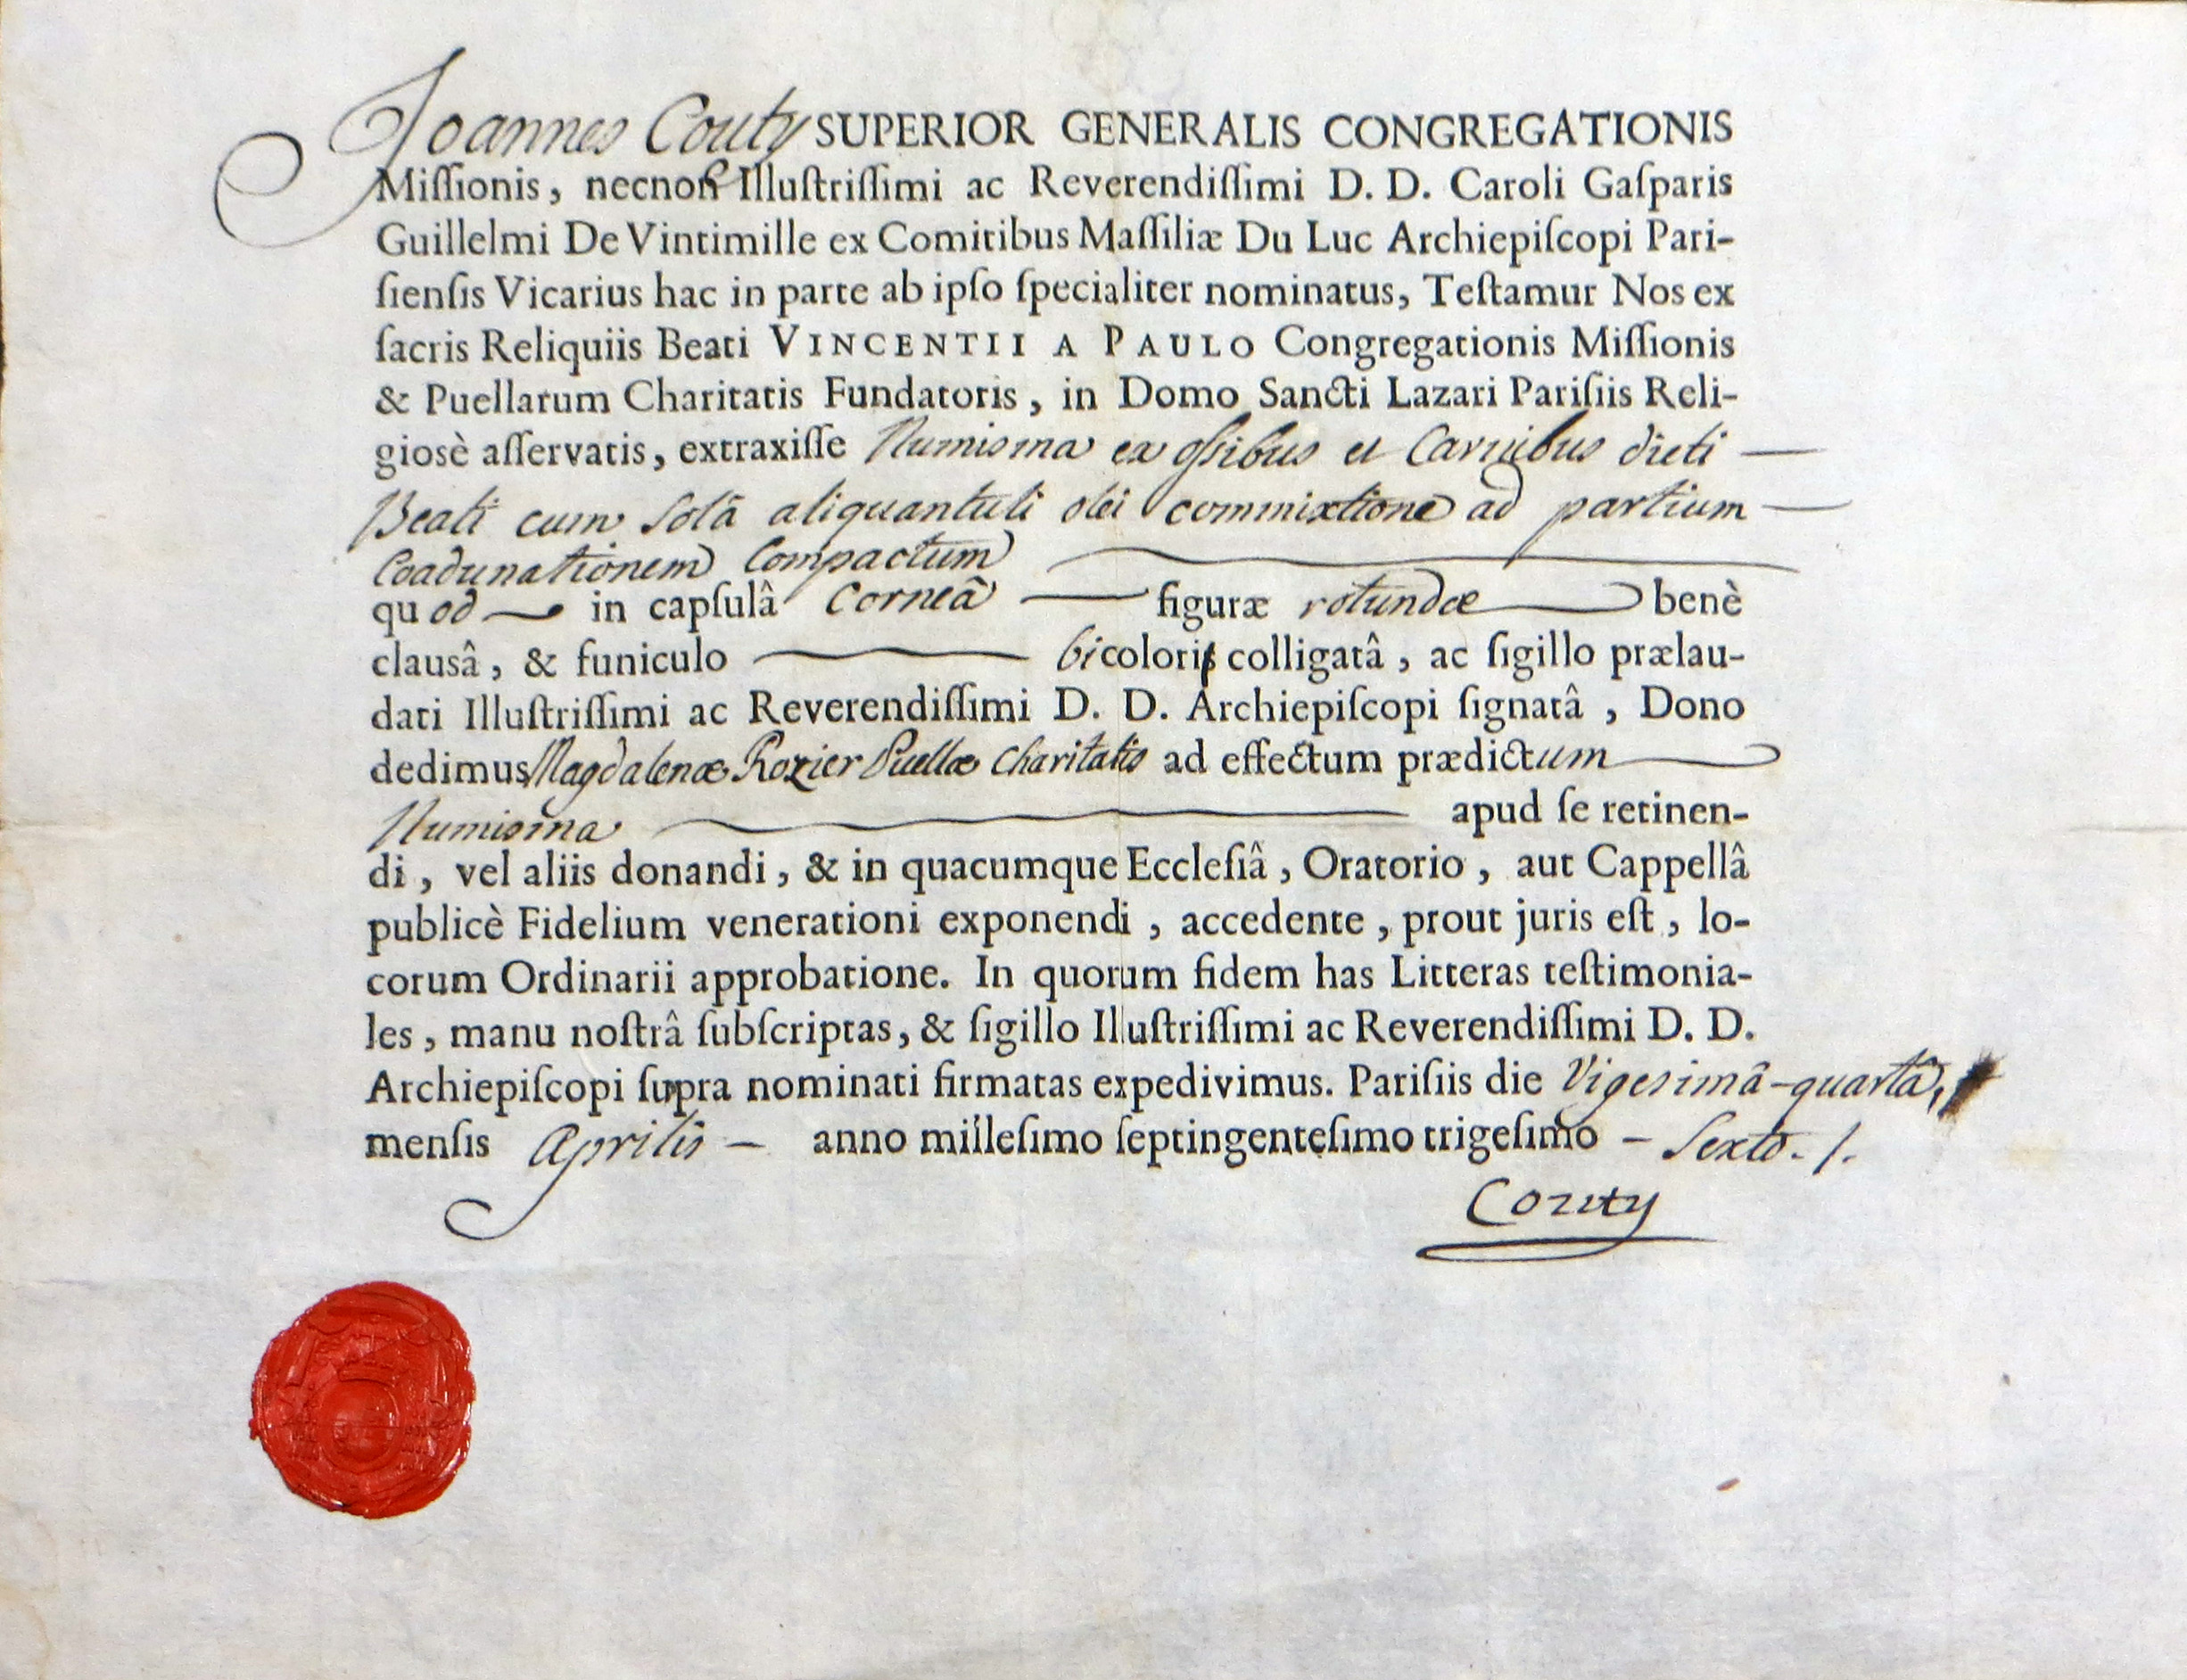 Joannes Couty SUPERIOR GENERALIS CONGREGATIONIS
Miſſionis, necnon Illuſtriſſimi ac Reverendiſſimi D. D. Caroli Gaſparis
Guillelmi De Vintimille ex Comitibus Maſſiliæ Du Luc Archiepiſcopi Pari-
ſienſis Vicarius hac in parte ab ipſo ſpecialiter nominatus, Teſtamur Nos ex
ſacris Reliquiis Beati VINCENTII A PAULO Congregationis Miſſionis
& Puellarum Charitatis Fundatoris, in Domo Sancti Lazari Pariſiis Reli-
giosè aſſervatis, extraxiſſe Numisma ex oſsibus et Carnibus dicti —
Beati cum Solâ aliquantuli olei commixtione ad partium —
Coadunationem Compactum
quod — in capſulâ Corneâ — figuræ rotundæ — benè
clausâ, & funiculo — bicolori colligatâ, ac ſigillo prælau-
dati Illuſtriſſimi ac Reverendiſſimi D. D. Archiepiſcopi ſignatâ, Dono
dedimus Magdalenæ Rozier Puellæ Charitatis ad effectum prædictum —
Numisma — apud ſe retinen-
di, vel aliis donandi, & in quacumque Eccleſiâ, Oratorio, aut Cappellâ
publicè Fidelium venerationi exponendi, accedente, prout juris eſt, lo-
corum Ordinarii approbatione. In quorum fidem has Litteras teſtimonia-
les, manu noſtrâ ſubſcriptas, & ſigillo Illuſtriſſimi ac Reverendiſſimi D. D.
Archiepiſcopi ſupra nominati firmatas expedivimus. Pariſiis die Vigesimâ-quartâ,
menſis Aprilis — anno milleſimo ſeptingenteſimo trigeſimo — Sexto. /.
Couty